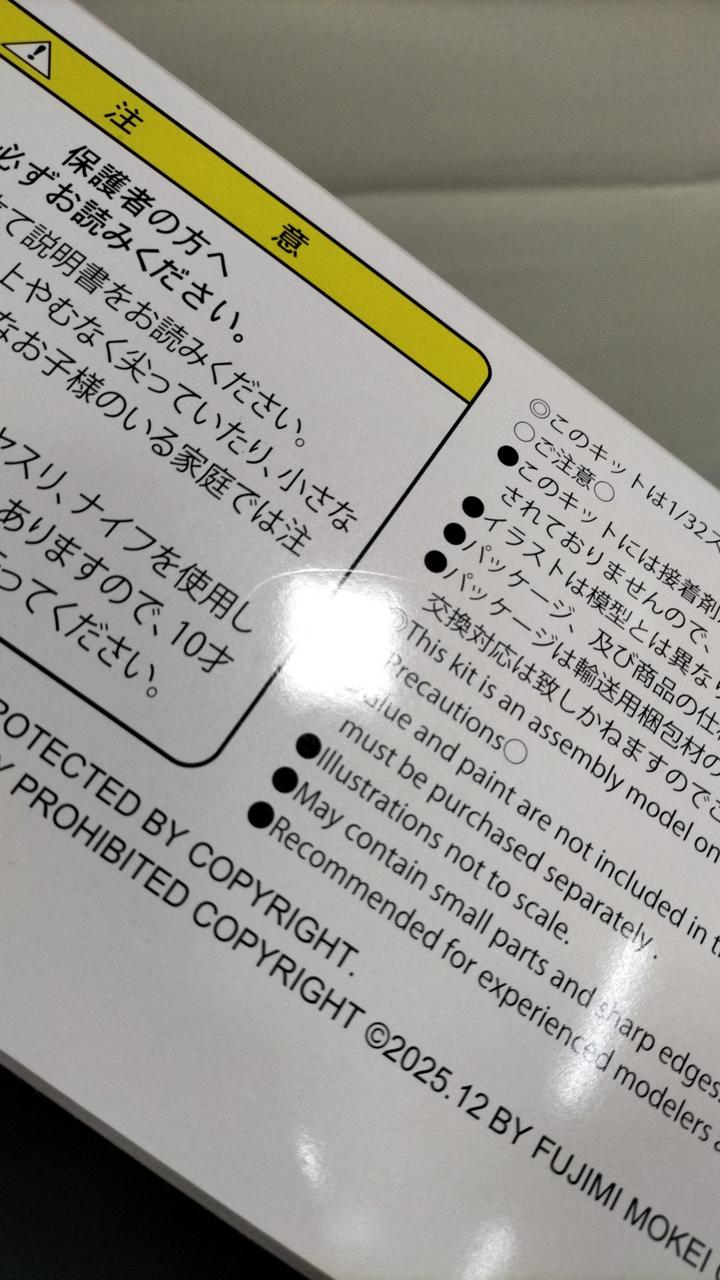 注 意
保護者の方へ
必ずお読みください。
て説明書をお読みください。
上やむなく尖っていたり、小さな
なお子様のいる家庭では注
ヤスリ、ナイフを使用し
ありますので、10才
ってください。
◎このキットは1/32ス
○ご注意○
●このキットには接着剤
されておりませんので、
●イラストは模型とは異なり
●パッケージ、及び商品の仕
●パッケージは輸送用梱包材の
交換対応は致しかねますのでご
◎This kit is an assembly model on
Precautions○
Glue and paint are not included in
must be purchased separately.
●Illustrations not to scale.
●May contain small parts and sharp edges.
●Recommended for experienced modelers
PROTECTED BY COPYRIGHT.
Y PROHIBITED COPYRIGHT ©2025.12 BY FUJIMI MOKEI